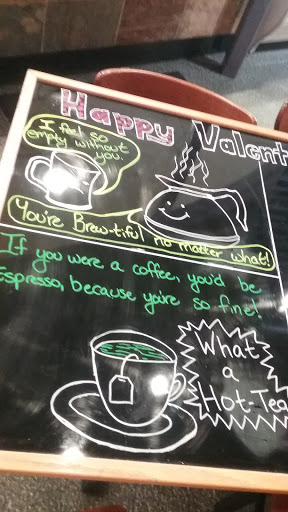 Happy Valent
I feel so
empty without
you.
You're Brew-tiful no matter what!
If you were a coffee, you'd be
Espresso, because you're so fine!
What
a
Hot-Tea